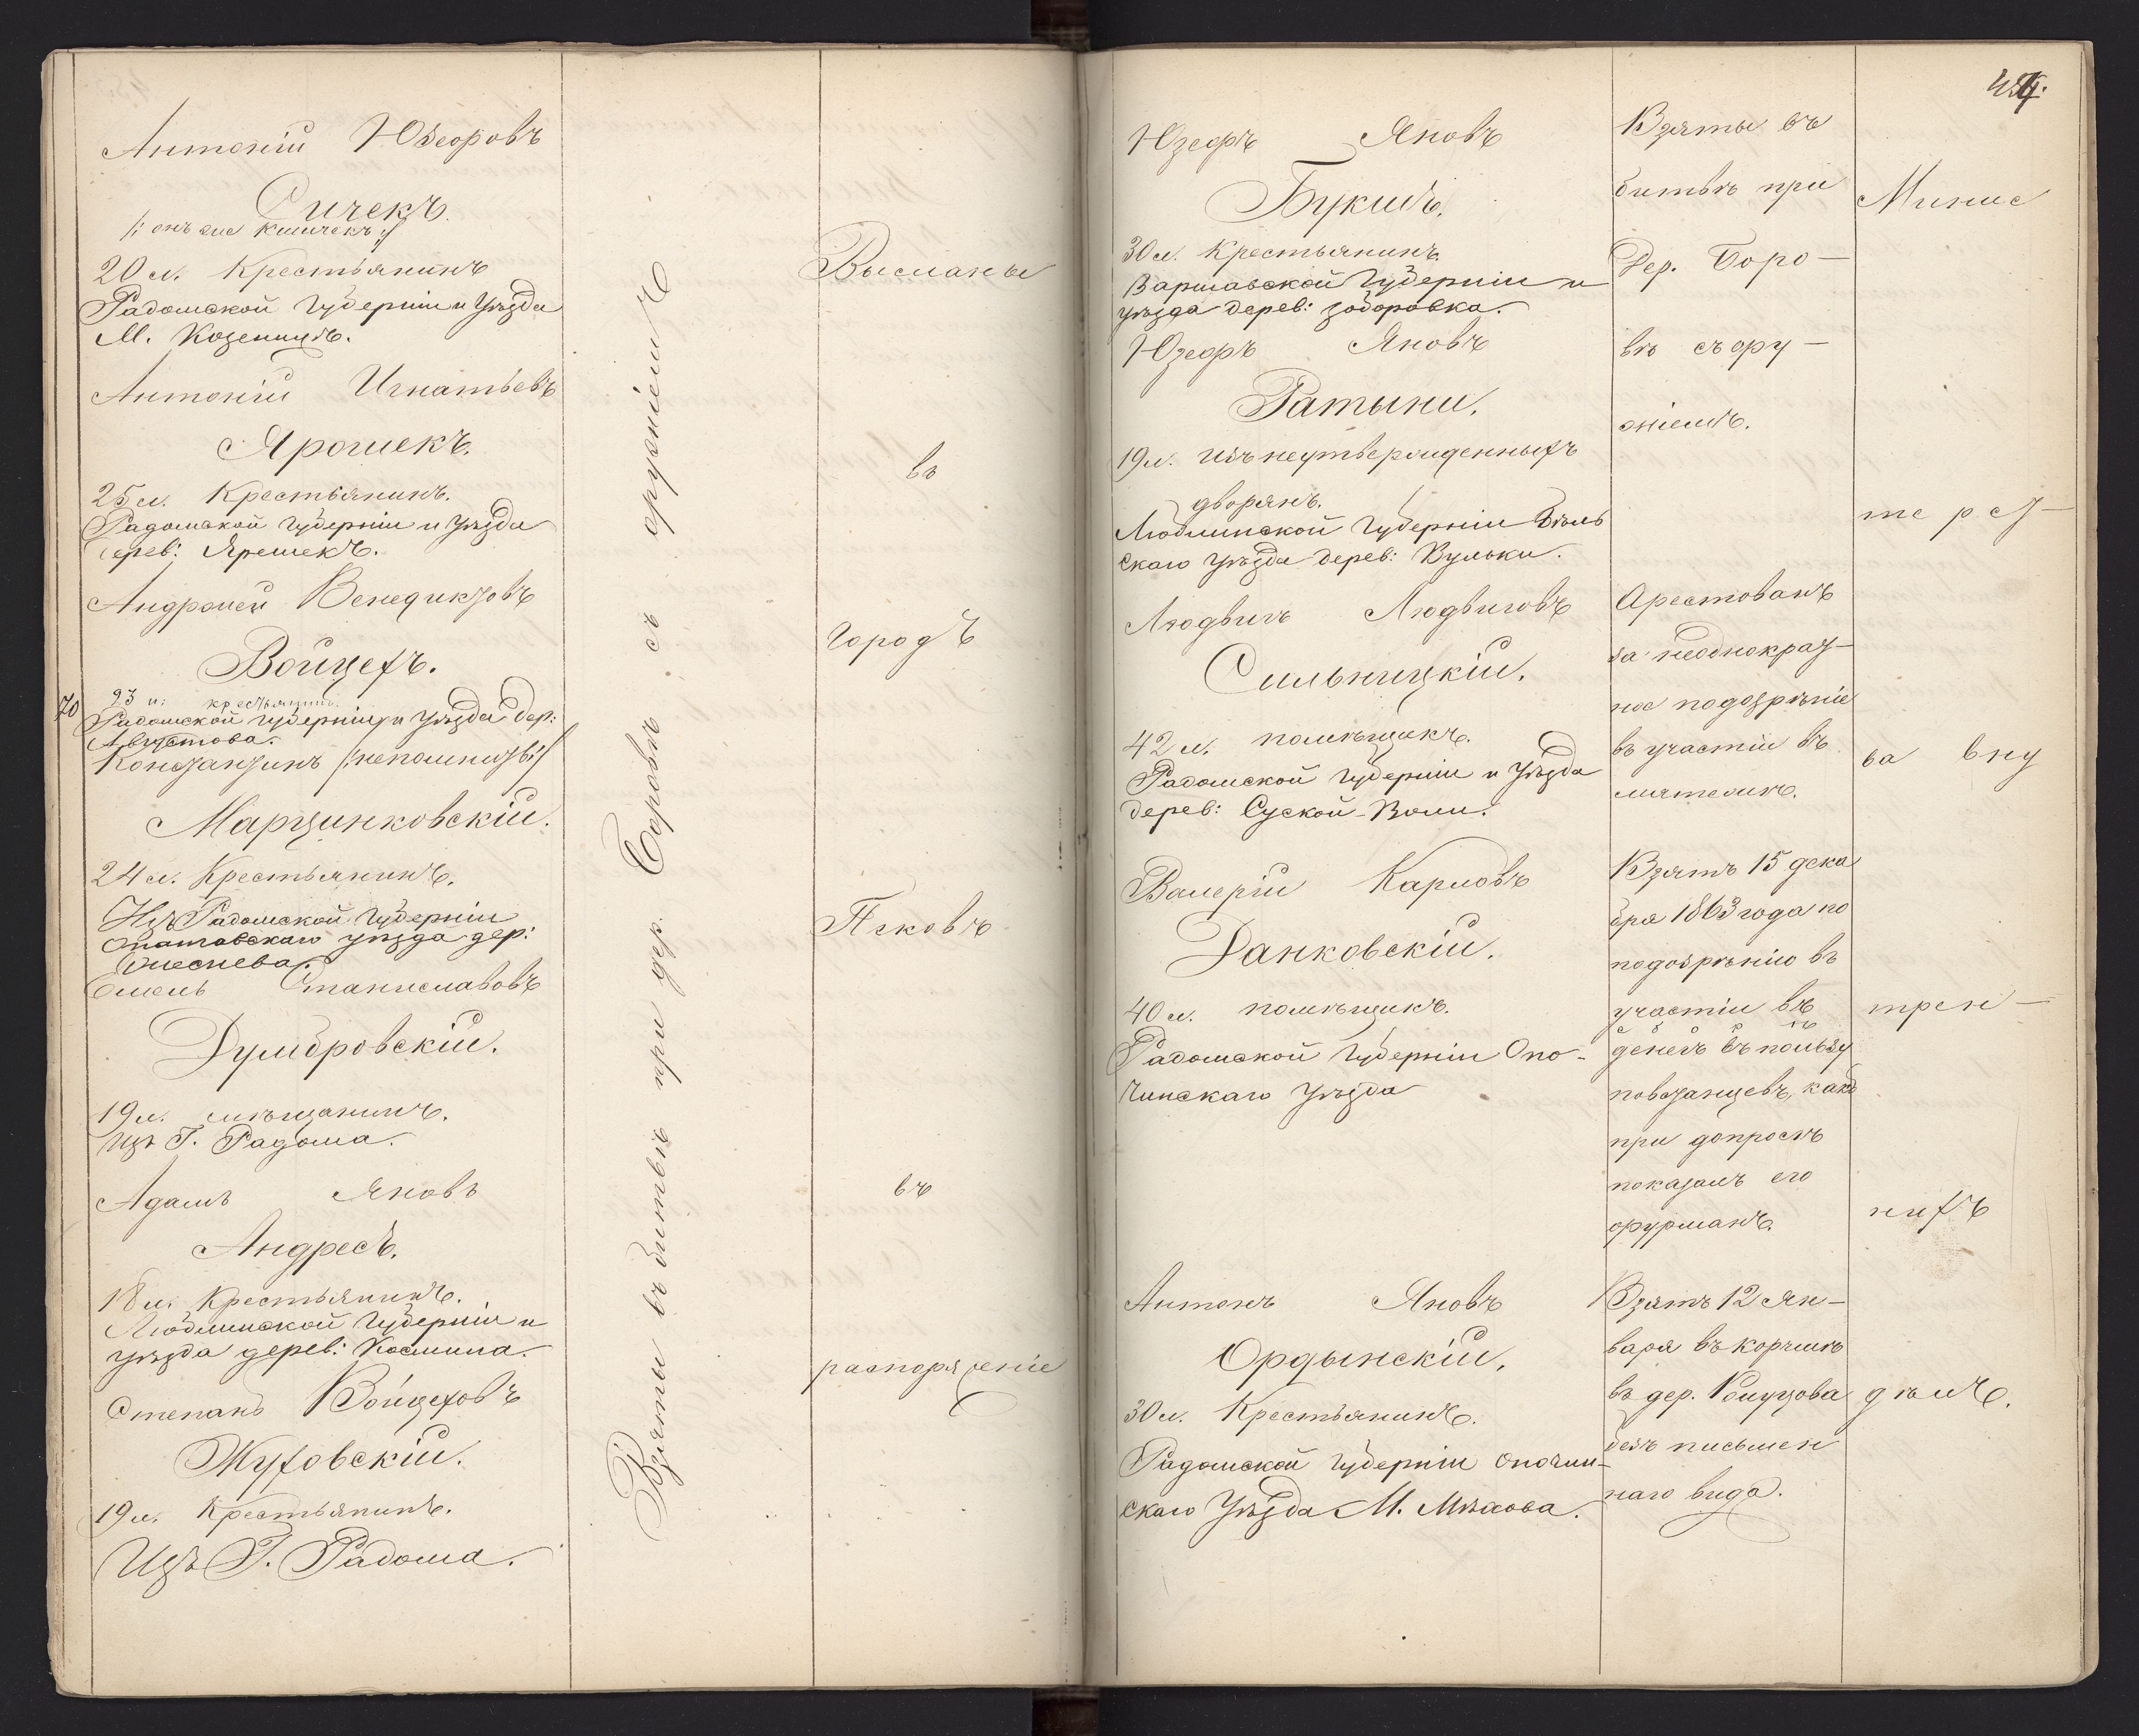 Антоній Юзеоровъ
Сичекъ.
/: онъ же Кишчекъ :/
20 л. Крестьянинъ
Радомской Губерніи и Уѣзда
М. Козеницъ.
Антоній Игнатьевъ
Ярошекъ.
25 л. Крестьянинъ.
Радомской Губерніи и Уѣзда
дерев: Ярошекъ.
Андроней Венедиктовъ
Войцехъ.
70
23 л: крестьянинъ.
Радомской Губерніи и Уѣзда дер:
Августова.
Константинъ /:непомнитъ:/
Марцинковскій.
24 л. Крестьянинъ.
Изъ Радомской Губерніи
Опатовскаго уѣзда дер:
Станиславовъ
Думбровскій.
19 л. мѣщанинъ.
изъ Г. Радома.
Адамъ Яновъ
Андресъ.
18 л. Крестьянинъ.
Люблинской Губерніи и
уѣзда дерев: Космина.
Степанъ Войцеховъ
Жуховскій.
19 л. Крестьянинъ.
Изъ Г. Радома.
Взяты въ битвѣ при дер. Боровѣ съ оружіемъ
Высланы
въ
городъ
Псковъ
въ
распоряженіе
454.
Юзефъ Яновъ
Букшъ.
30 л. Крестьянинъ.
Варшавской Губерніи и
уѣзда дерев: Зборовка.
Юзефъ Яновъ
Ратыни.
19 л. изъ неутвержденныхъ
дворянъ.
Люблинской Губерніи Бѣль
скаго уѣзда дерев: Вульки.
Людвигъ Людвиговъ
Сильницкій.
42 л. помѣщикъ.
Радомской Губерніи и Уѣзда
дерев: Суской-Воли.
Валерій Карловъ
Данковскій.
40 л. помѣщикъ.
Радомской Губерніи Опо-
чинскаго Уѣзда
Антонъ Яновъ
Ордынскій.
30 л. Крестьянинъ.
Радомской Губерніи Опочин-
скаго Уѣзда М.
Взяты въ
битвѣ при
Дер. Боро-
вѣ съ ору-
жіемъ.
Арестованъ
за неоднократ-
ное подозрѣніе
въ участіи въ
мятежѣ.
Взятъ 15 дека
бря 1863 года по
подозрѣнію въ
участіи въ
денегъ въ пользу
повстанцевъ, какъ
при допросѣ
показалъ его
фурманъ.
Взятъ 12 Ян-
варя въ корчмѣ
въ дер.
безъ письмен
наго вида.
Минис
терст-
ва вну
трен-
нихъ
дѣлъ.